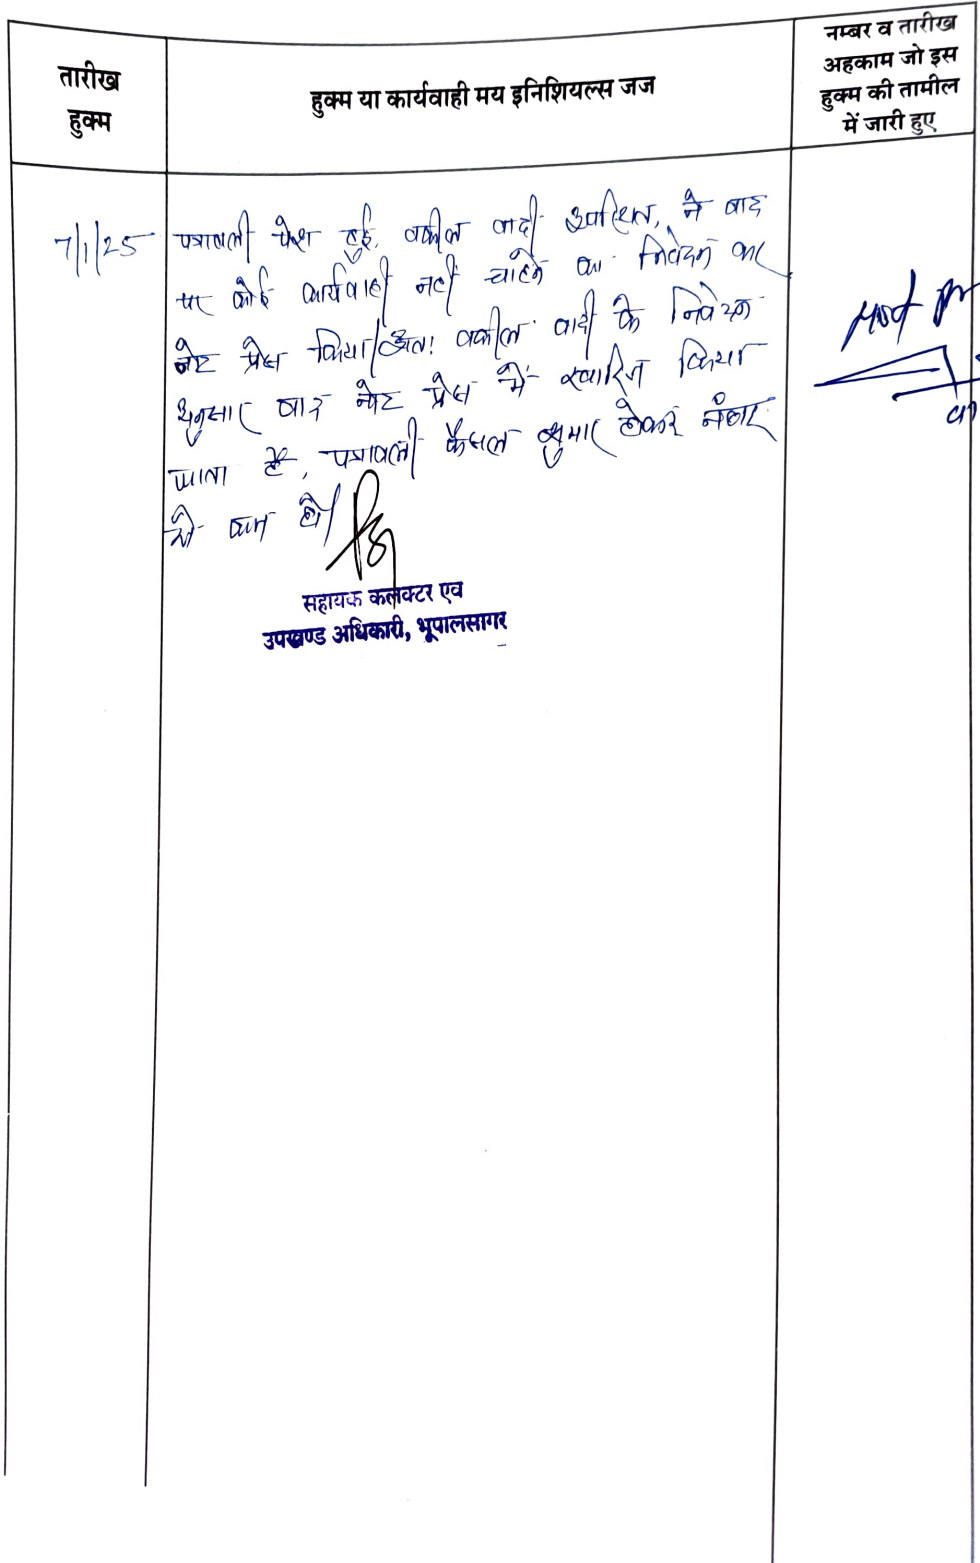 तारीख
हुक्म
हुक्म या कार्यवाही मय इनिशियल्स जज
नम्बर व तारीख
अहकाम जो इस
हुक्म की तामील
में जारी हुए
7/1/25 पत्रावली पेश हुई, वकील वादी उपस्थित, ने वाद
पर कोई कार्यवाही नहीं चाहने का निवेदन कर
नोट प्रेस किया। अतः वकील वादी के निवेदन
अनुसार वाद नोट प्रेस में खारिज किया
जाता है, पत्रावली फैसल शुमार होकर नंबर
से कम हो।
सहायक कलक्टर एव
उपखण्ड अधिकारी, भूपालसागर